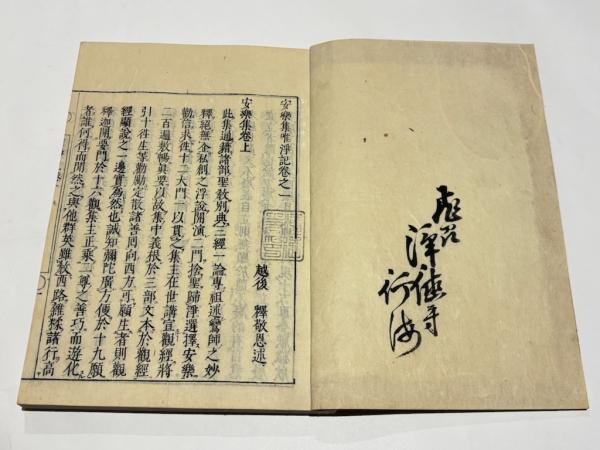 淨徳寺
行海
安樂集唯淨記卷之一
越後 釋敬恩述
安樂集卷上
此集通藉諸部聖教別典三經一論專祖述鸞師之妙
釋絕無企私創之浮說開演二門捨聖歸淨選擇安樂
勸信求徃十二大門一以貫之集主在世講宣觀經將
二百遍敷暢眞要以故集中義根於三部文本於觀經
引十徃生等勸勵定散諸善同向西方可願生者則觀
經顯說之一邊實爲然也誠知彌陀廣方便於十九願
釋迦開要門於十六觀集主正乘二尊之善巧而遊化
者誰何得而間然之與他群英雖敎西路雜糅諸行高